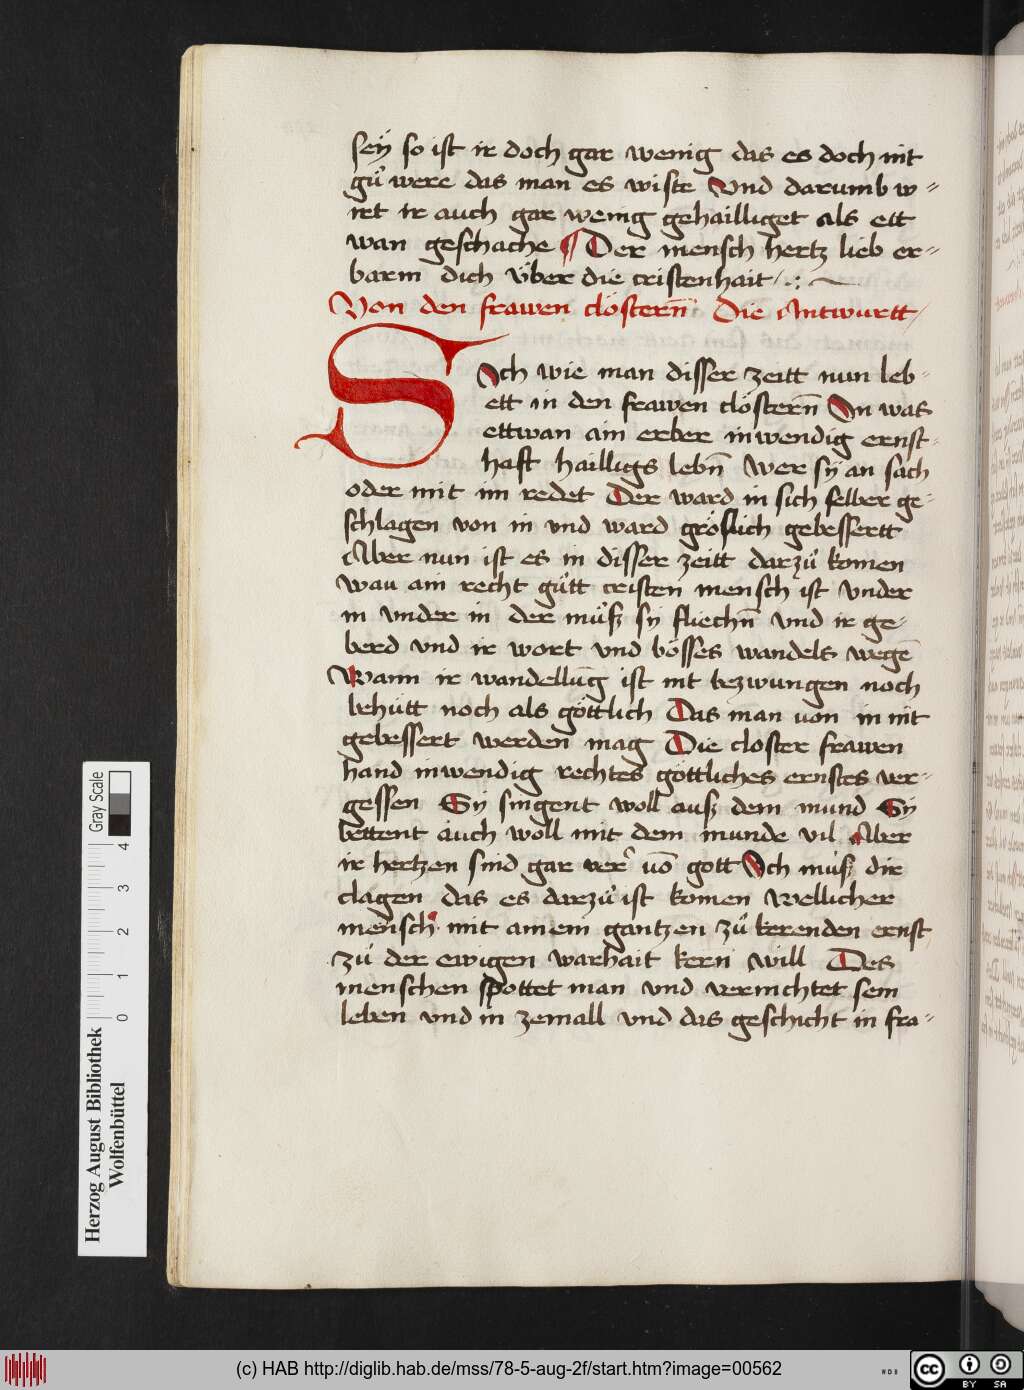 seÿ so ist ir doch gar wenig das es doch nit
gůt were das man es wiste Vnd darumb w=
irt ir auch gar wenig gehailliget als ett
wan geschache ¶ Der mensch hertz lieb er=
barm dich über die cristenhait
Von den frawen clöstern̄ Die Antwurtt
Sich wie man disser zeitt nun leb=
ett in den frawen clöstern̄ In was
ettwan ain erber inwendig ernst=
haft hailligs lebn̄ Wer sÿ an sach
oder mit im redet Der ward in sich selber ge=
schlagen von in vnd ward gröslich gebessertt
Aber nun ist es in disser zeitt darzů komen
wau ain recht gůtt cristen mensch ist vnder
in vnder in der můß sÿ fliechn̄ vnd ir ge=
berd vnd ir wort vnd bösses wandels wegē
Wann ir wandellūg ist nit bezwungen noch
behütt noch als göttlich Das man uon in nit
gebessert werden mag Die closter frawen
hand inwendig rechtes göttliches ernstes ver=
gessen Sÿ singent woll auß dem mund Sÿ
bettent auch woll mit dem munde vil Aber
ir hertzen sind gar verr uō gott Ich můß dir
clagen das es darzů ist komen wellicher
mensch mit ainem gantzen zů kerenden ernst
zů der ewigen warhait kern will Des
menschen spottet man vnd vernichtet sein
leben vnd in zemall vnd das geschicht in fra=
Gray Scale
0 1 2 3 4
Herzog August Bibliothek
Wolfenbüttel
(c) HAB http://diglib.hab.de/mss/78-5-aug-2f/start.htm?image=00562
WDB
cc BY SA